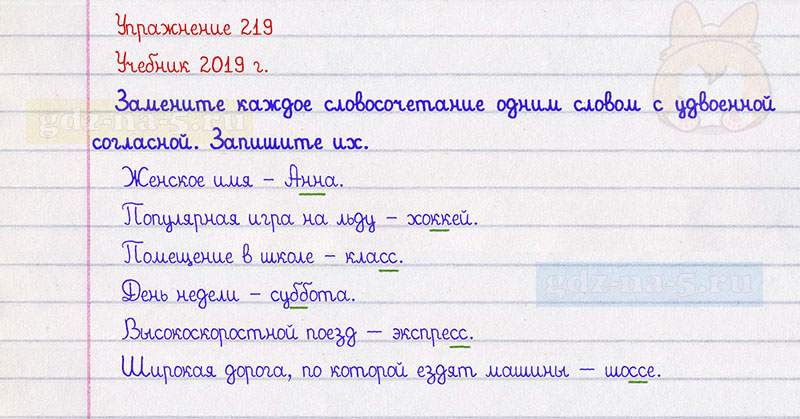 Упражнение 219
Учебник 2019 г.
Замените каждое словосочетание одним словом с удвоенной
согласной. Запишите их.
gdz-na-5.ru
Женское имя – Анна.
Популярная игра на льду – хоккей.
Помещение в школе – класс.
День недели – суббота.
gdz-na-5.ru
Высокоскоростной поезд — экспресс.
Широкая дорога, по которой ездят машины — шоссе.